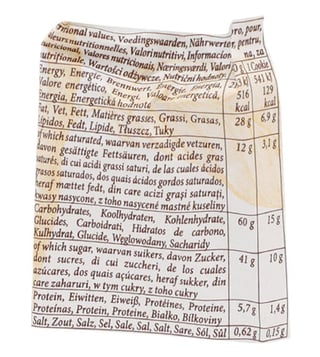 Nutritional values, Voedingswaarden, Nährwerte, pro, pour,
Valeurs nutritionnelles, Valorinutritivi, Informacion per, pentru,
nutricional, Valores nutricionais, Næringsværdi, Valori na, za
nutriţionale, Wartości odżywcze, Nutriční hodnoty Cookie
Energy, Energie, Brennwert, Energie, Energia, kJ 541 kJ
Valore energético, Energi, Valoare energetică, 516 129
Energia, Energetická hodnota kcal kcal
Fat, Vet, Fett, Matières grasses, Grassi, Grasas, 28 g 6,9 g
Lípidos, Fedt, Lipide, Tłuszcz, Tuky
of which saturated, waarvan verzadigde vetzuren, 12 g 3,1 g
davon gesättigte Fettsäuren, dont acides gras
saturés, di cui acidi grassi saturi, de las cuales ácidos
grasos saturados, dos quais ácidos gordos saturados,
heraf mættet fedt, din care acizi graşi saturaţi,
kwasy nasycone, z toho nasycené mastné kuseliny
Carbohydrates, Koolhydraten, Kohlenhydrate, 60 g 15 g
Glucides, Carboidrati, Hidratos de carbono,
Kulhydrat, Glucide, Węglowodany, Sacharidy
of which sugar, waarvan suikers, davon Zucker, 41 g 10 g
dont sucres, di cui zuccheri, de los cuales
azúcares, dos quais açúcares, heraf sukker, din
care zaharuri, w tym cukry, z toho cukry
Protein, Eiwitten, Eiweiß, Protéines, Proteine, 5,7 g 1,4 g
Proteínas, Protein, Proteine, Białko, Bílkoviny
Salt, Zout, Salz, Sel, Sale, Sal, Salt, Sare, Sól, Sůl 0,62 g 0,15 g